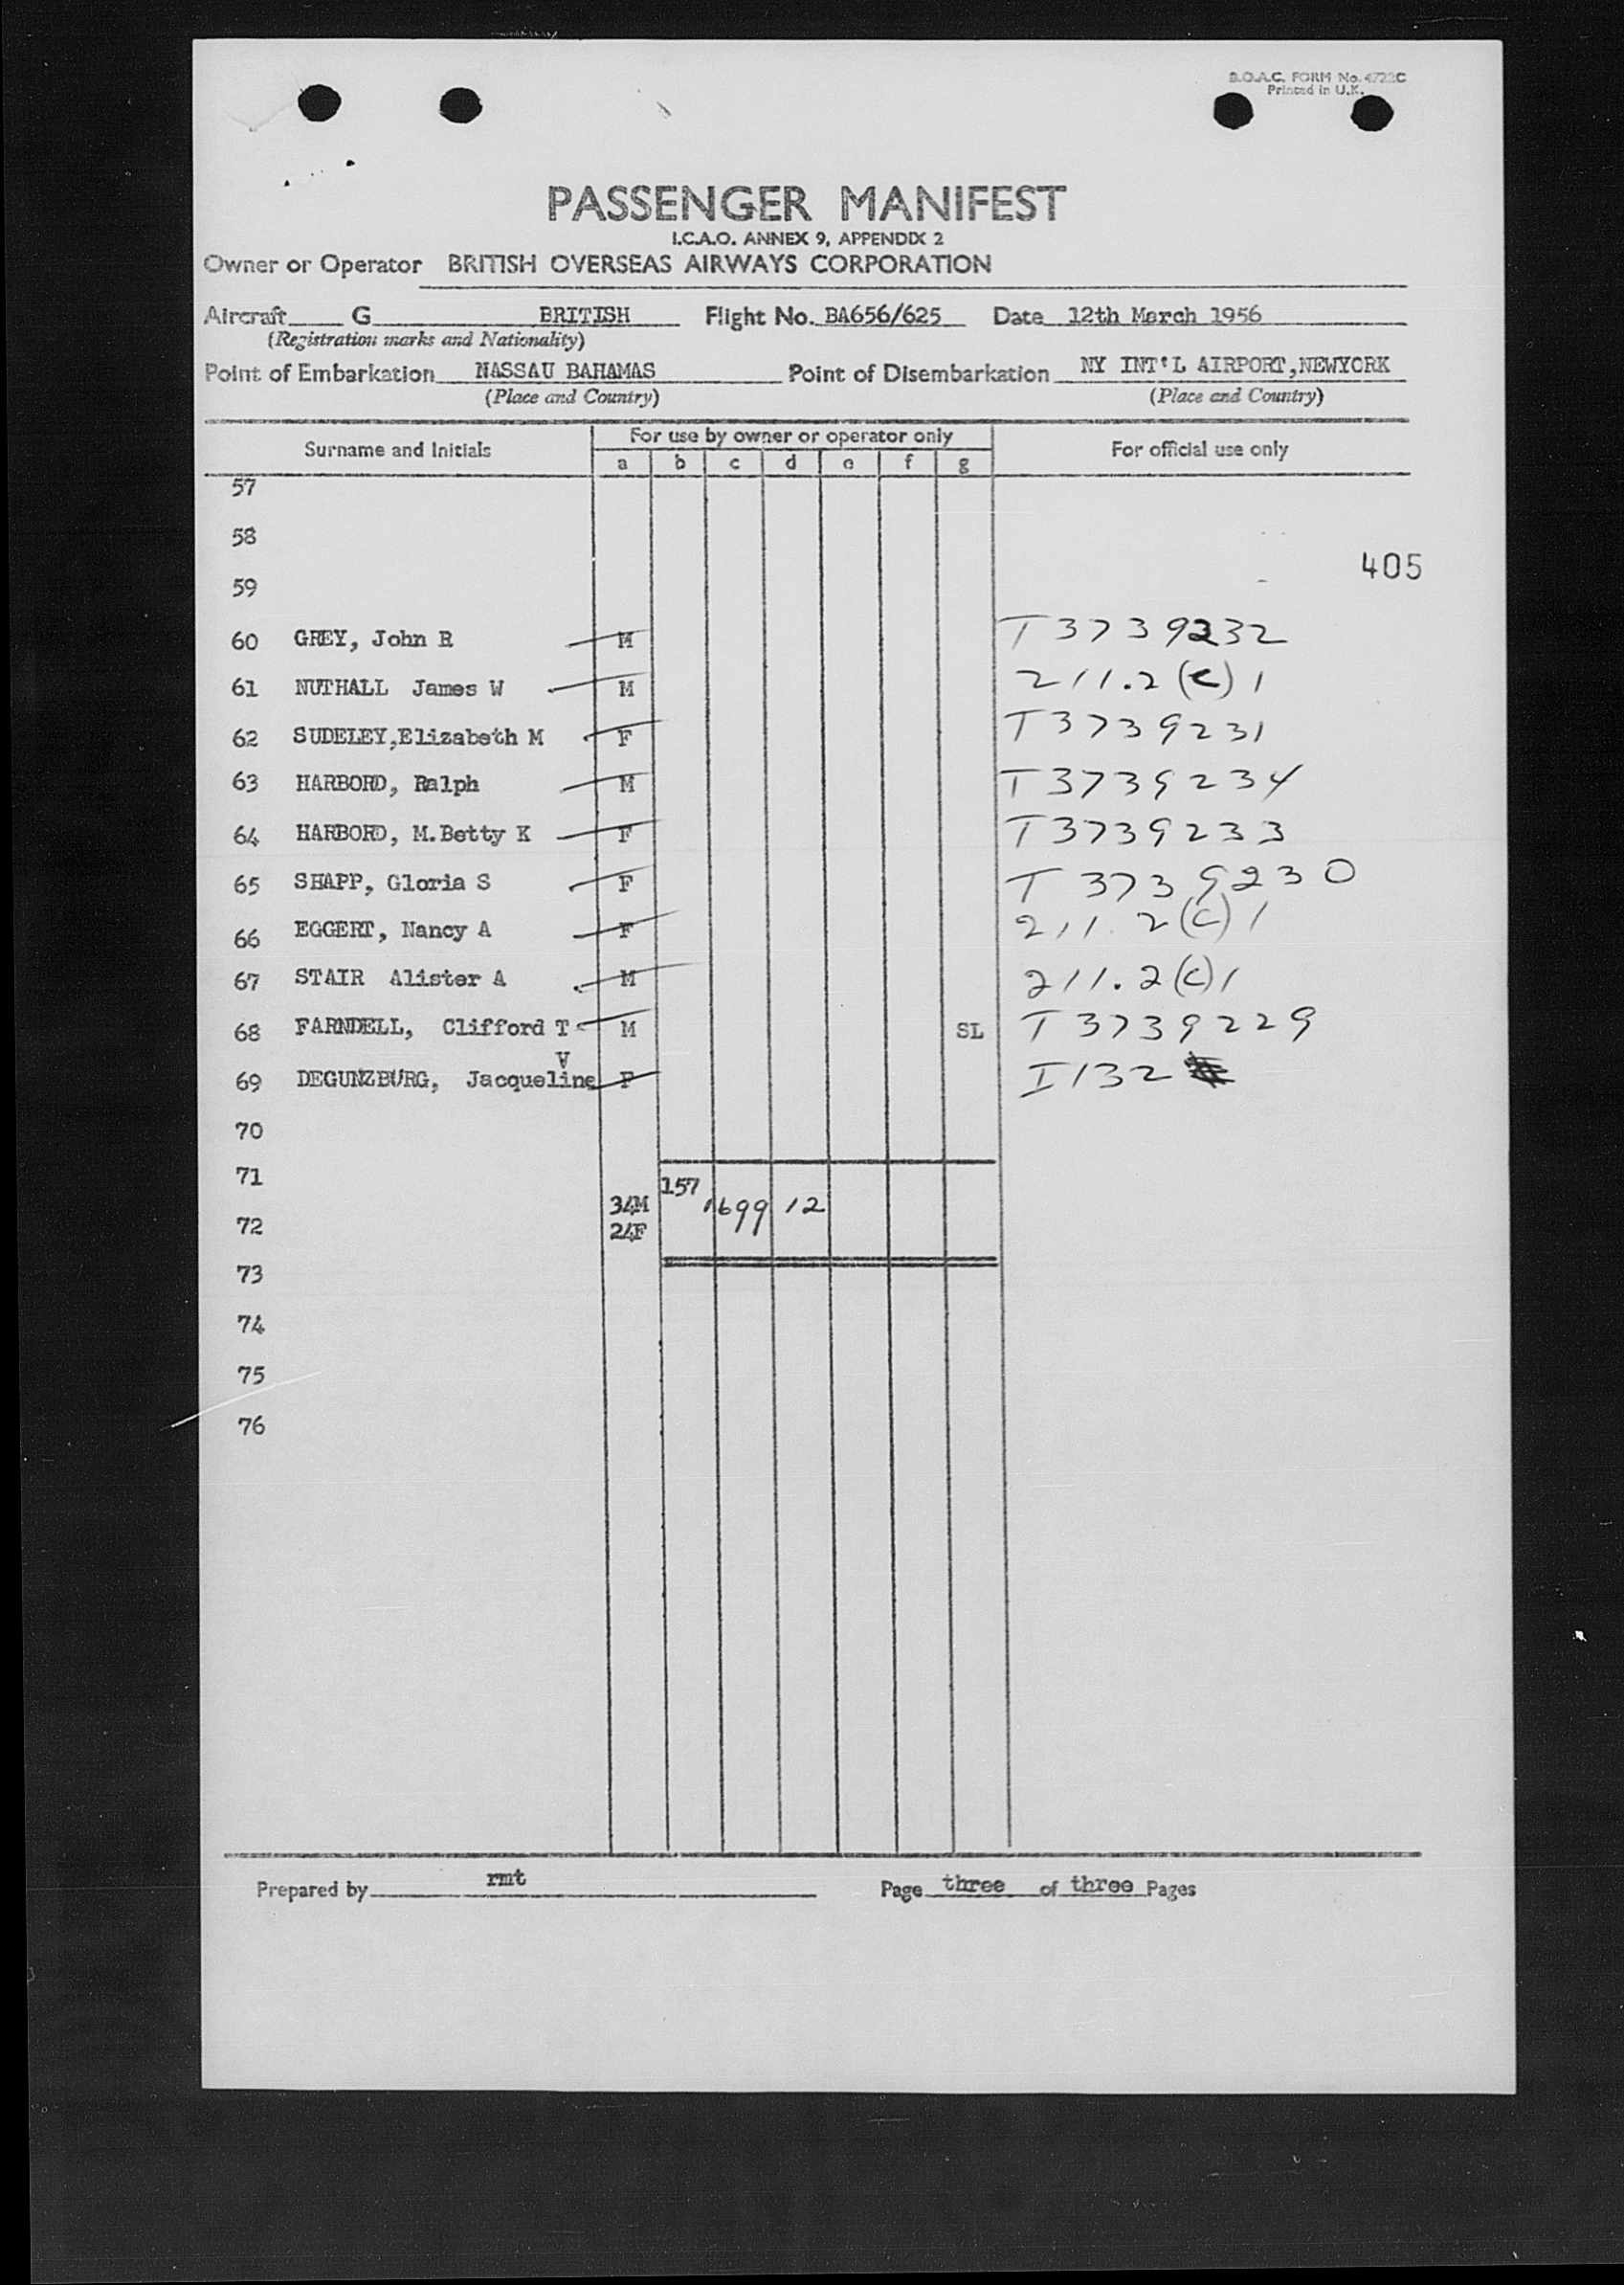 B.O.A.C. FORM No. 4722C
Printed in U.K.
PASSENGER MANIFEST
I.C.A.O. ANNEX 9, APPENDIX 2
Owner or Operator BRITISH OVERSEAS AIRWAYS CORPORATION
Aircraft G BRITISH Flight No. BA656/625 Date 12th March 1956
(Registration marks and Nationality)
Point of Embarkation NASSAU BAHAMAS Point of Disembarkation NY INT'L AIRPORT,NEWYORK
(Place and Country) (Place and Country)
Surname and Initials For use by owner or operator only For official use only
a b c d e f g
57
58
405
59
60 GREY, John R M T3739232
61 NUTHALL James W M 211.2(c)1
62 SUDELEY,Elizabeth M F T3739231
63 HARBORD, Ralph M T3739234
64 HARBORD, M.Betty K F T3739233
65 SHAPP, Gloria S F T3739230
66 EGGERT, Nancy A F 211.2(c)1
67 STAIR Alister A M 211.2(c)1
68 FARNDELL, Clifford T M SL T3739229
V
69 DEGUNZBURG, Jacqueline F I132
70
71
34M 157 1699 12
72
24F
73
74
75
76
Prepared by rmt Page three of three Pages